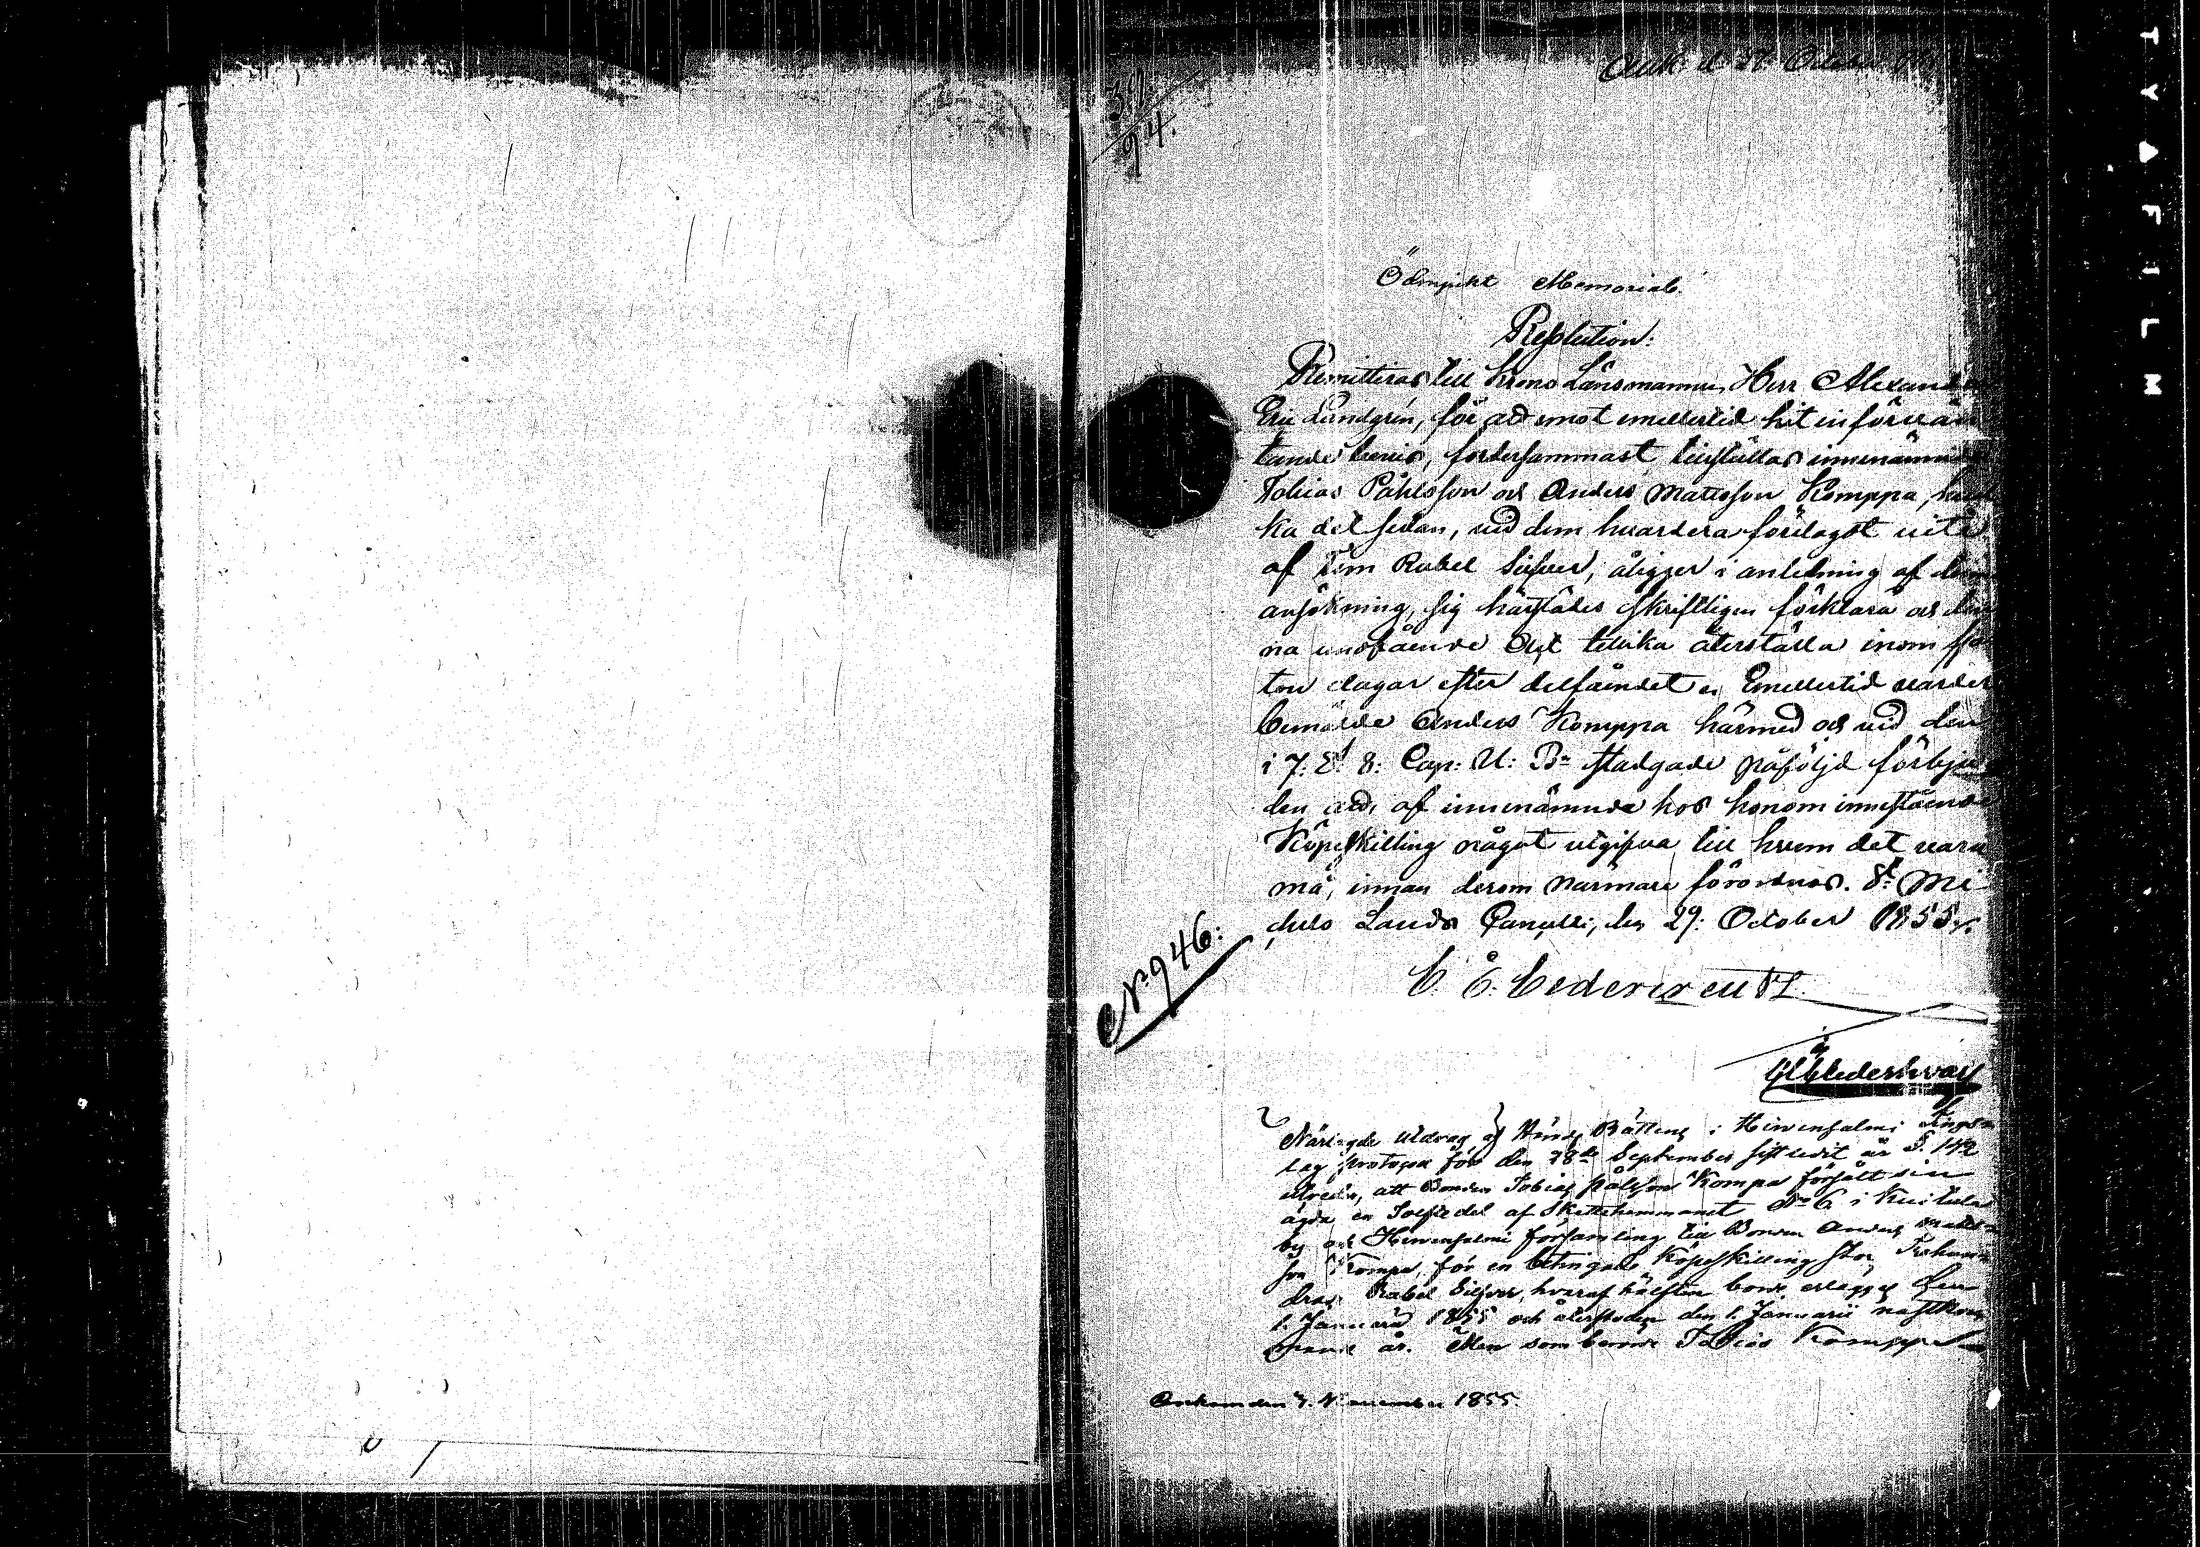 Ank. d. 27 October
39/94.
Ödmjukt Memorial.
Resolution:
Remitteras till Krono Länsmannen, Herr Alexand
Eric Landgrén, för att emot emellertid hit införvän
tande bevis, fordersammast tillställas innenämnde
Tobias Påhlsson och Anders Mattsson Komppa, hvil
ka det sedan, vid dem hvardera förelagdt vite
af Fem Rubel Silfver, åligger i anledning af denna
ansökning, sig härstädes skriftligen förklara och den
na undfående Act tillika återställa inom fjor
ton dagar efter delfåendet. Emellertid varder
bemälde Anders Komppa härmed och vid den
i 7: § 8: Cap: U: B: stadgade påföljd förbju
den att, af innenämnde hos honom innestående
Köpeskilling något utgifva till hvem det vara
må, innan derom närmare förordnas. St Mi
chels Lands Cancelli, den 29: October 1855.
C. O. Cedercreutz.
No 946:
Närlagde utdrag af Härads Rättens i Hirvensalmi Tings
lag protocoll för den 28de September sistledit år §. 142
utvisar, att Bonden Tobias Pålsson Kompa försålt sin
ägda en Tolftedel af Skattehemmanet No 6 i Kuitula
by och Hirvensalmi församling till Bonden Anders Matts
son Kompa, för en betingad Köpeskilling stor Trehun
dra Rubel Silfver, hvaraf hälften borde erläggas den
1. Januarii 1855 och återstoden den 1. Januarii nästkom
mande år. Men som berörde Tobias Komppa
Ankom den 7. November 1855.
TYAFILM